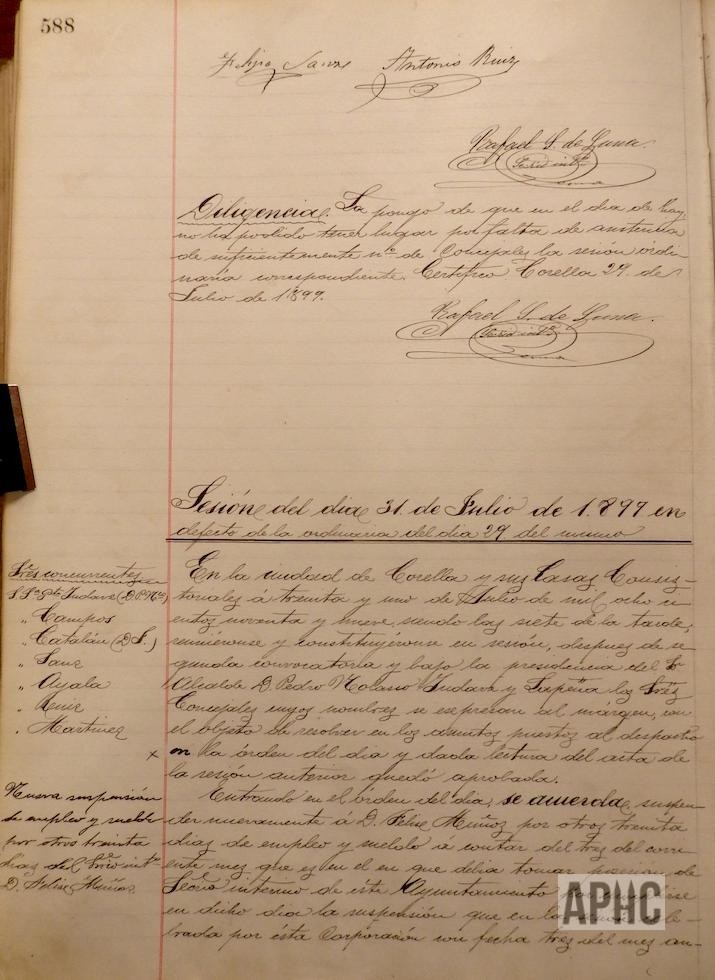 588
Felipe Sanz Antonio Ruiz
Rafael S. de Luna.
Diligencia. La pongo de que en el dia de hoy
no ha podido tener lugar por falta de asistencia
de suficientemente nº de Concejales la sesión órdi-
naria correspondiente. Certifico Corella 29 de
Julio de 1899.
Rafael S. de Luna.
Sesión del dia 31 de Julio de 1.899 en
defecto de la ordinaria del dia 29 del mismo
Sres concurrentes
„ Campos
„ Catalán (D. F.)
„ Sanz
„ Ayala
„ Ruiz
„ Martinez
En la ciudad de Corella y sus Casas Consis-
toriales á treinta y uno de Julio de mil ocho ci
entos noventa y nueve siendo las siete de la tarde,
reuniéronse y constituyéronse en sesión, despues de se-
gunda convocatoria y bajo la presidencia del Sr
Alcalde D. Pedro Nolasco Yudara y Lapeña los Sres
Concejales cuyos nombres se espresan al márgen, con
el objeto de resolver en los asuntos puestos al despacho
× en la órden del dia y dada lectura del acta de
la sesión anterior quedó aprobada.
Nueva suspensión
de empleo y sueldo
por otros treinta
dias del Srio intº
D. Felix Muñoz.
Entrando en el órden del dia, se acuerda, suspen-
der nuevamente á D. Felix Muñoz por otros treinta
dias de empleo y sueldo á contar del tres del corri-
ente mes que es en el en que debia tomar posesión de
Secrio interino de este Ayuntamiento
en dicho dia la suspensión que en la cele-
brada por ésta Corporación con fecha tres del mes an-
APHC